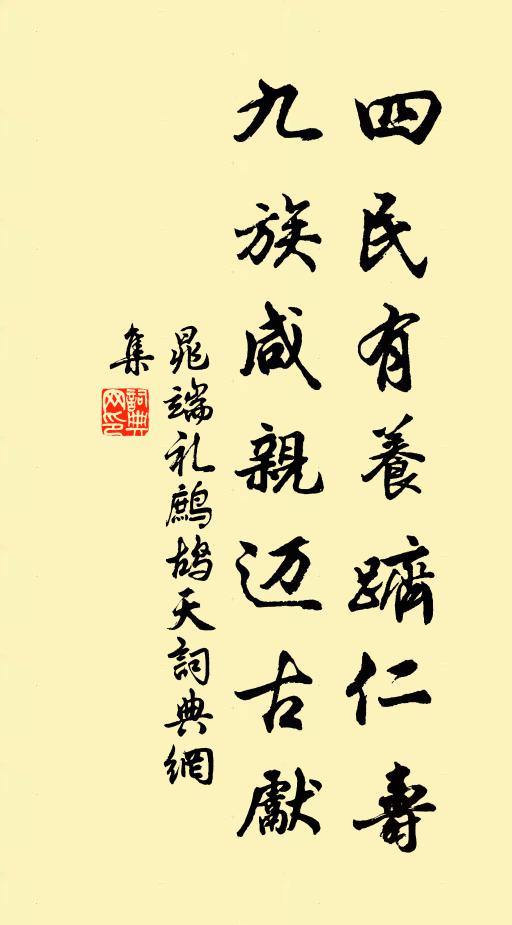 四民有養躋仁壽
九族咸親迈古獻
晁端礼鷓鴣天詞典網
集
詞典网印